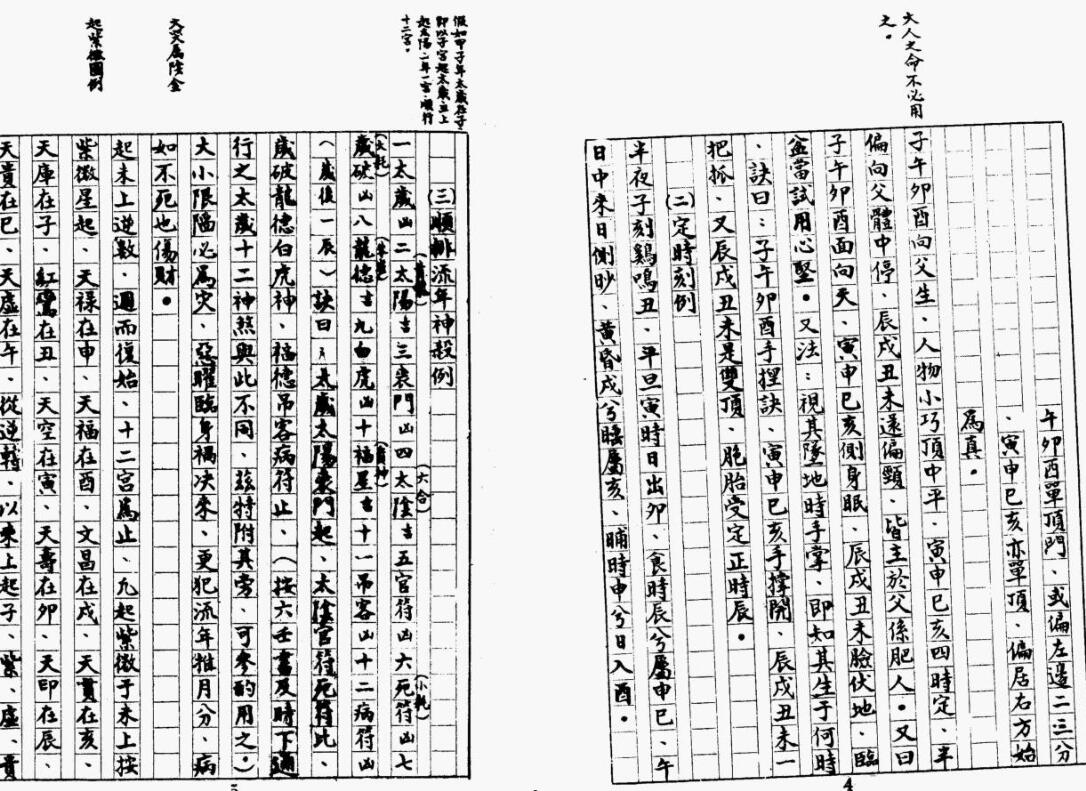 大人之命不必用
之。
午卯酉單頂門、或偏左邊二三分
、寅申巳亥亦單頂、偏居右方始
為真。
子午卯酉向父生、人物小巧頂中平、寅申巳亥四時定、半
偏向父體中停、辰戌丑未還偏頸、皆主於父係肥人。又曰
子午卯酉面向天、寅申巳亥側身眠、辰戌丑未臉伏地、臨
盆當試用心堅。又法：視其墜地時手掌、即如其生于何時
、訣曰：子午卯酉手揑訣、寅申巳亥手撑開、辰戌丑未一
把抓、又辰戌丑未是雙頂、胞胎受定正時辰。
(二)定時刻例
半夜子刻鷄鳴丑、平旦寅時日出卯、食時辰兮屬申巳、午
日中來日側眇、黃昏戌兮睡屬亥、晡時申兮日入酉。
4
假如甲子年太歲在子
即以子宮起太歲、丑上
起太陽、一年一宮、順行
十二宮。
(三)順排流年神殺例
一太歲凶二太陽吉三喪門凶四太陰吉五官符凶六死符凶七
(六合)
(小耗)
歲破凶八龍德吉九白虎凶十福星吉十一吊客凶十二病符凶
(大耗)
(歲後一辰)訣曰：太歲太陽喪門起、太陰官符死符比、
歲破龍德白虎神、福德吊客病符止、(按六壬書及時下通
行之太歲十二神煞與此不同、茲特附其旁、可參酌用之。)
大小限陷必為灾、惡曜臨身禍决來、更犯流年推月分、病
如不死也傷財。
天哭屬陰金
起未上逆數、週而復始、十二宮為止、九起紫微于未上按
起紫微圖例
紫微星起、天祿在申、天福在酉、文昌在戌、天貫在亥、
天庫在子、紅鸞在丑、天空在寅、天壽在卯、天印在辰、
天貴在巳、天虛在午、從逆轉、以來上起子、紫、虛、貴